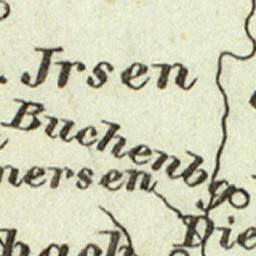 . Jrsen
Buchenbg
mersen
bach
Die